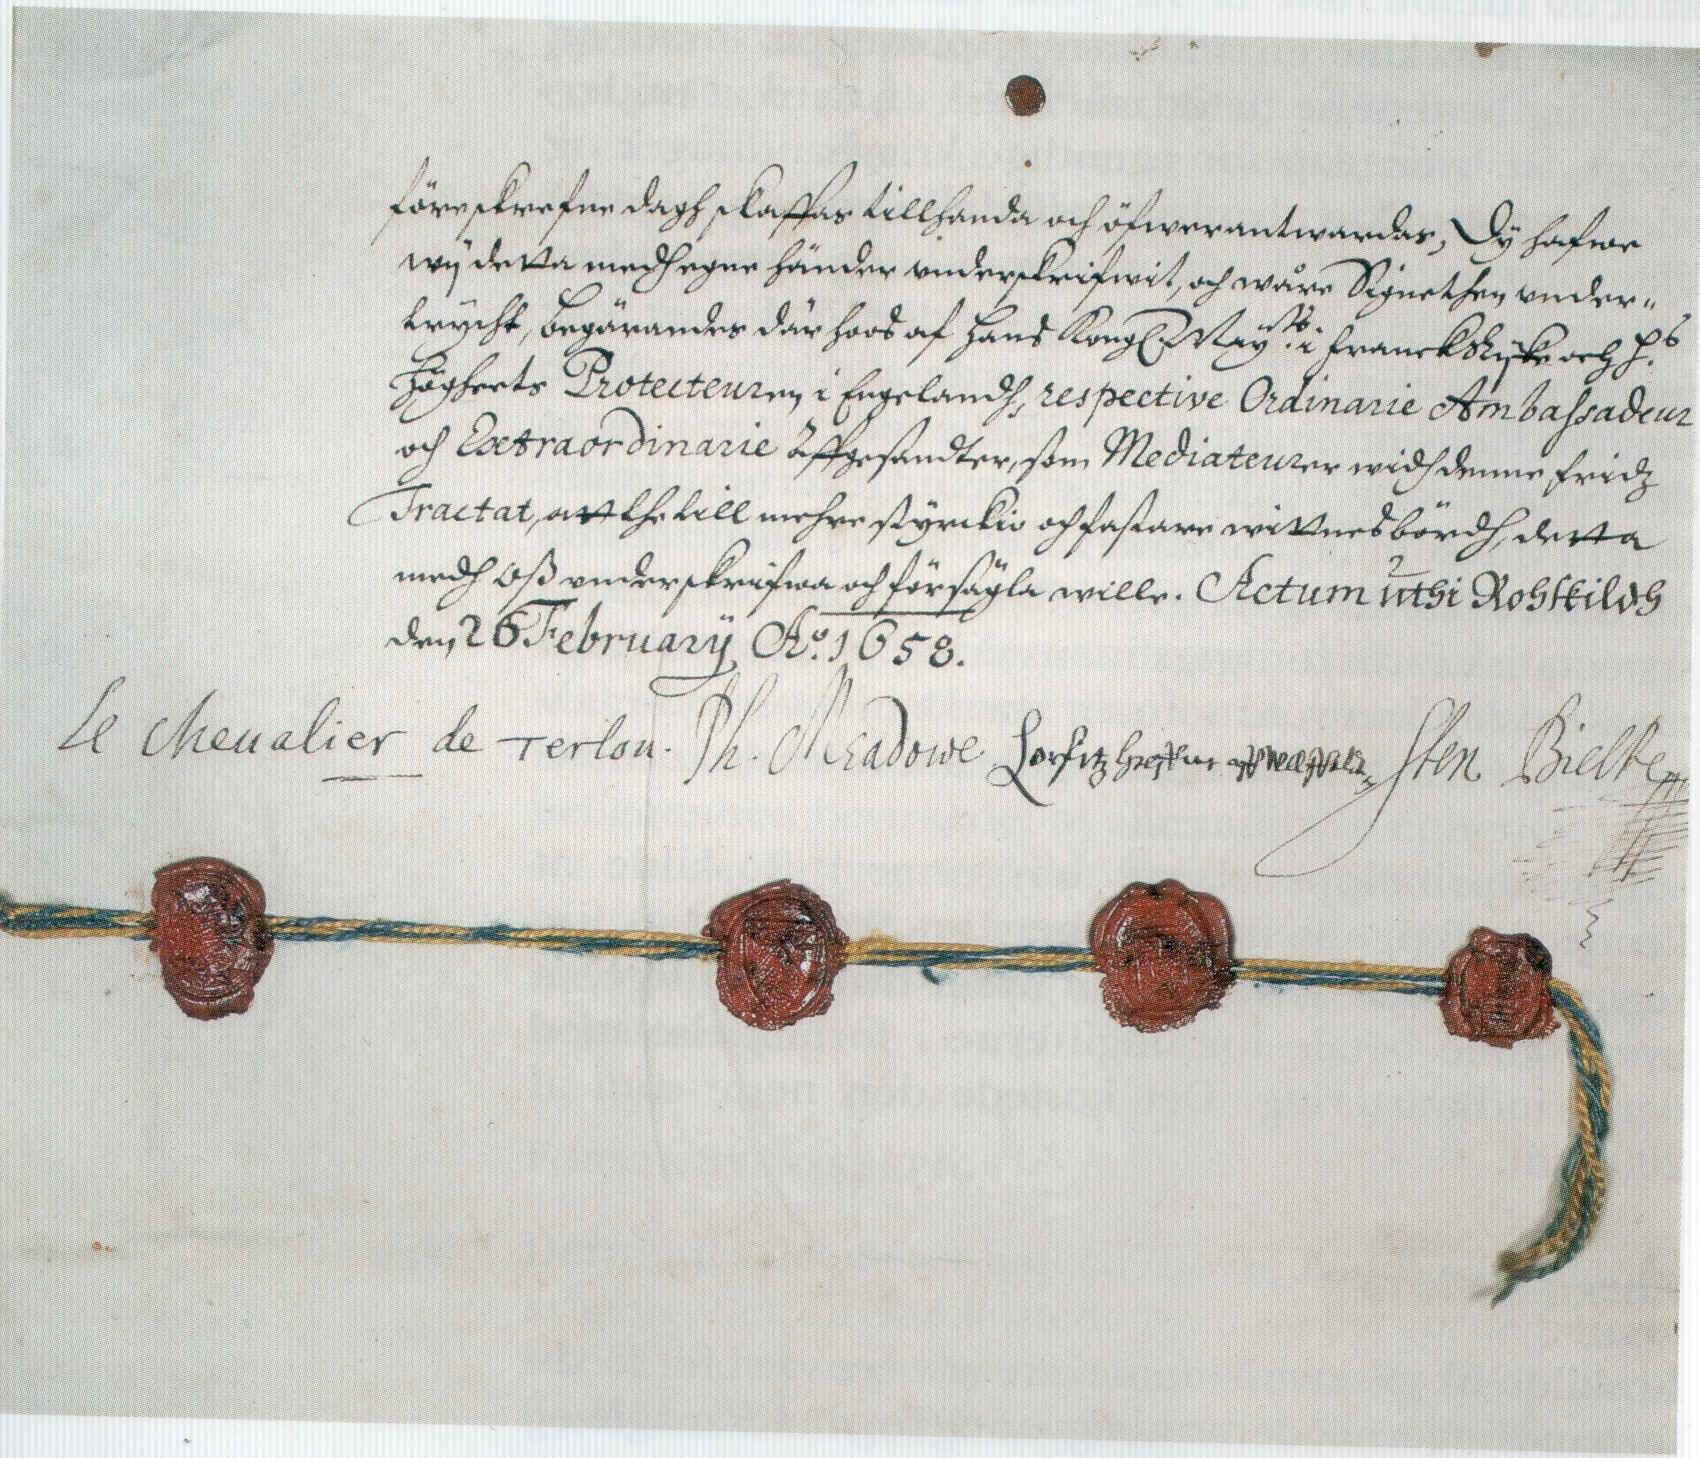 föreskrefne dagh skaffas tillhanda och öfwerantwardas, Dÿ hafwe
wÿ detta medh egne händer underskrifwit, och wåre Signether under-
trycht, begärandes där hoos af Hans Kongl. Maÿ:tts i Franckrijke och H:s
Högheets Protecteuren i Engelandh, respective Ordinarie Ambassadeur
och Extraordinarie Affgesandter, som Mediateurer widh denne fridz
Tractat, att the till mehre styrckio och fastare wittnesbördh, detta
medh oß underskrifwa och försägla wille. Actum uthi Rohskildh
den 26 Februarÿ A:o 1658.
Le Cheualier de Terlon. Ph. Meadowe Sten Bielke